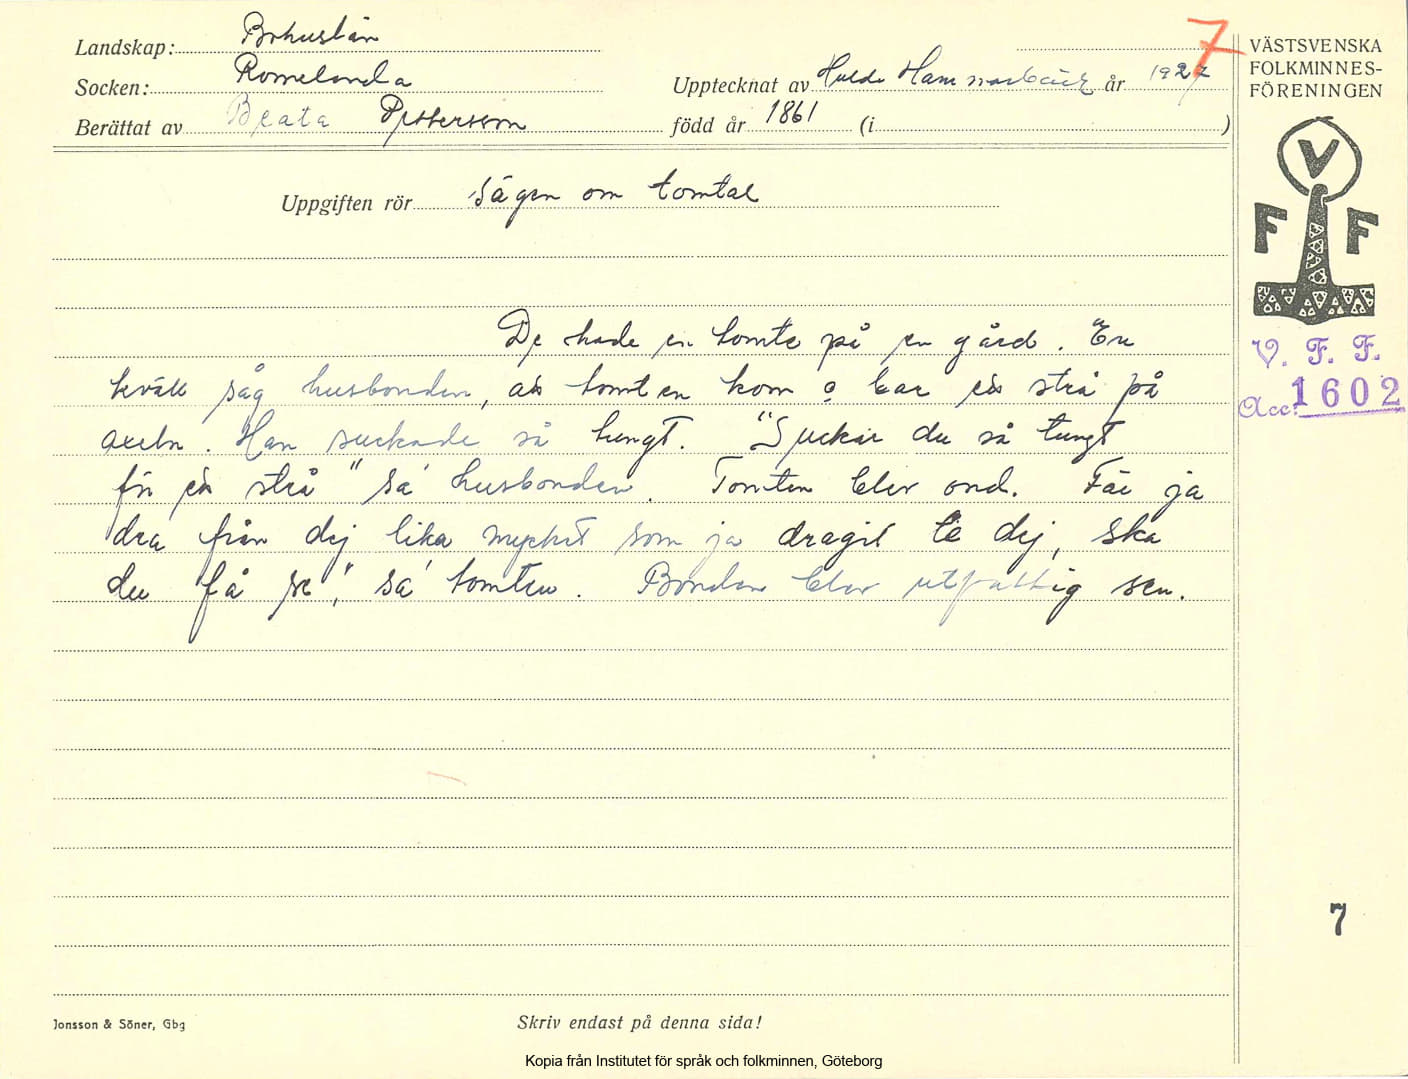 Landskap: Bohuslän
Socken: Romelanda
Berättat av Beata Pettersson
Upptecknat av Hulda Hammarbäck år 1927
född år 1861 (i )
7
VÄSTSVENSKA
FOLKMINNES-
FÖRENINGEN
V
F F
V. F. F.
Acc: 1602
Uppgiften rör Sägen om tomtal
De hade en tomte på en gård. En
kväll såg husbonden, att tomten kom o bar ett strå på
axeln. Han suckade så tungt. "Suckar du så tungt
för ett strå" sa' husbonden. Tomten blev ond. Får ja
dra från dej lika mycket som ja dragit te dej, ska
du få se", sa' tomten. Bonden blev utfattig sen.
7
Jonsson & Söner, Gbg
Skriv endast på denna sida!
Kopia från Institutet för språk och folkminnen, Göteborg